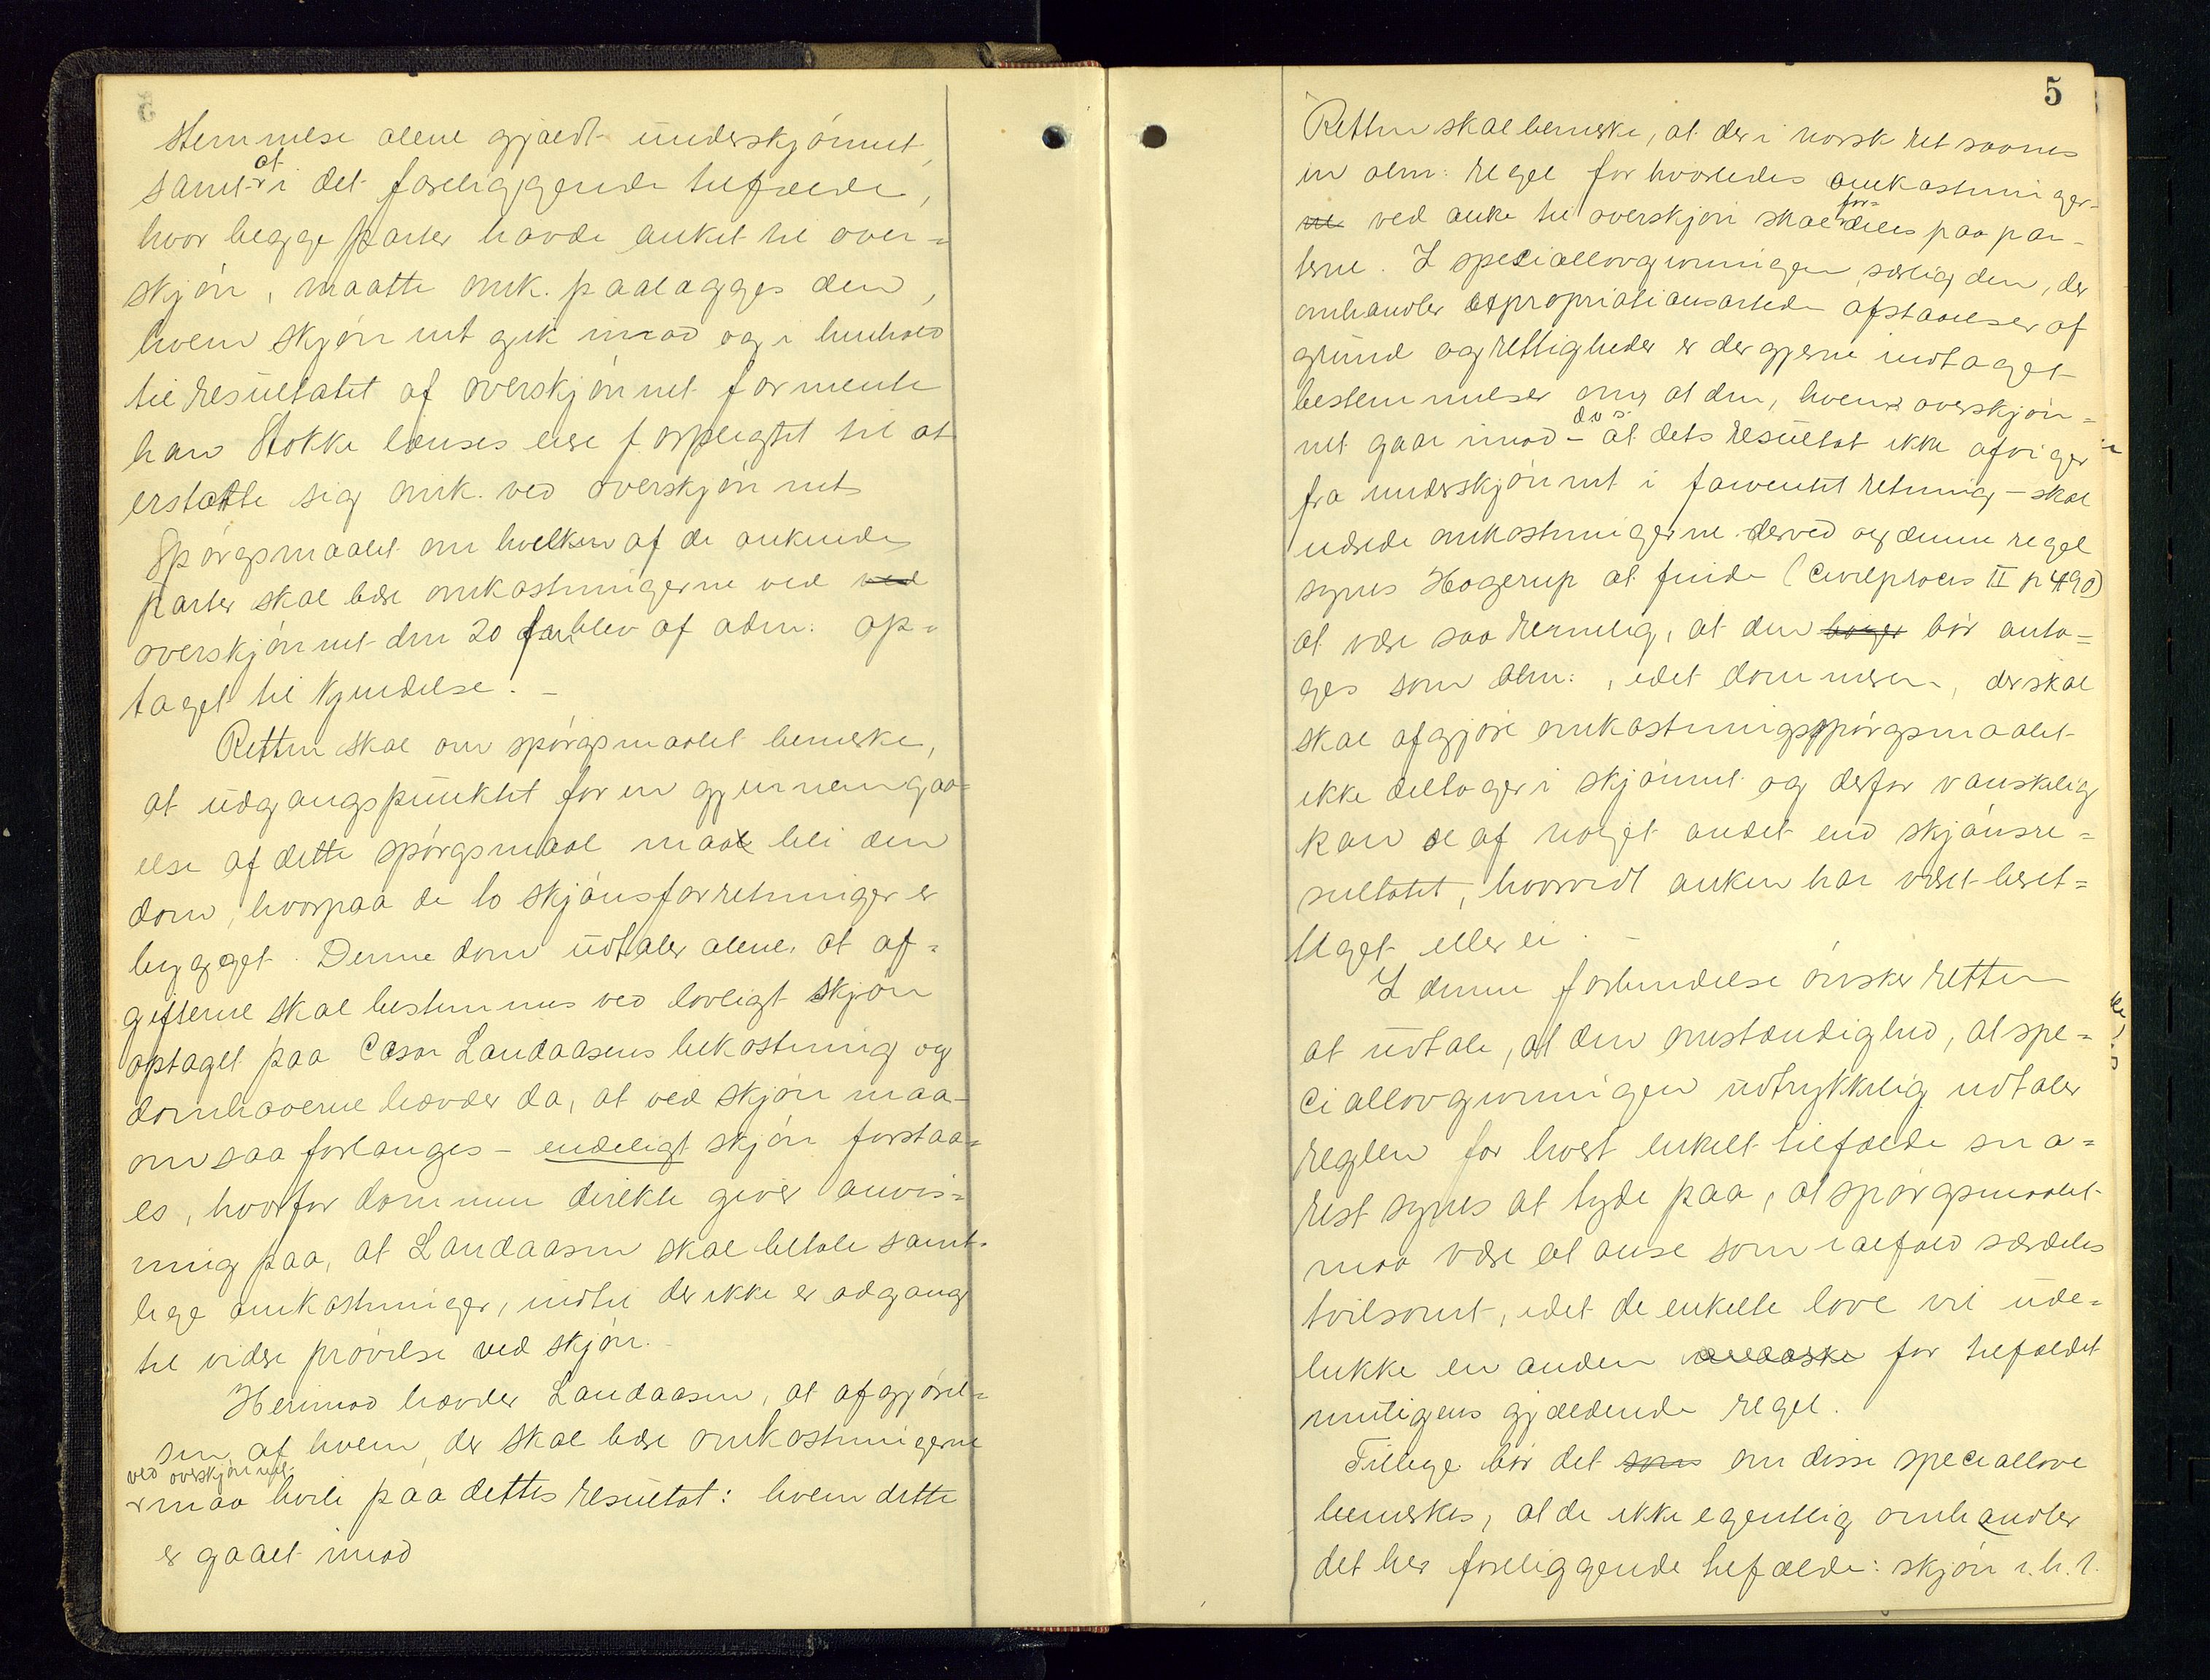 stemmelse alene gjaldt underskjønnet,
samt at i det foreliggende tilfælde,
hvor begge parter havde anket til over-
skjøn, maatte omk. paalægges den,
hvem skjønnet gik imod og i henhold
til resultatet af overskjønnet formente
han Stokke lænses eier forpligtet til at
erstatte sig omk. ved overskjønnet
Spørgsmaalet om hvilken af de ankende
parter skal bære omkostningerne ved ved
overskjønnet den 20 blev af adm: op-
taget til kjendelse. -
Retten skal om spørgsmaalet bemerke,
at udgangspunktet for en gjennemgaa-
else af dette spørgsmaal maa bli den
dom, hvorpaa de to skjønsforretninger er
bygget. Denne dom udtaler alene, at af-
gifterne skal bestemmes ved lovligt skjøn
optaget paa Casor Landaasens bekostning og
domhaverne hævder da, at ved skjøn maa-
om saa forlanges - endeligt skjøn forstaa-
es, hvorfor dommen direkte giver anvis-
ning paa, at Landaasen skal betale samt-
lige omkostninger, indtil der ikke er adgang
til videre prøvelse ved skjøn.
Herimod hævder Landaasen, at afgjørel-
sen af hvem, der skal bære omkostningerne
ved overskjønnet
maa hvile paa dettes resultat: hvem dette
er gaaet imod
5
Retten skal bemerke, at der i norsk ret savnes
en alm: regel for hvorledes omkostninger-
ne ved anke til overskjøn skal fordeles paa par-
terne. I speciallovgivningen, særlig den, der
omhandler expropriationsartede afstaaelser af
grund og rettigheder er der gjerne indtaget
bestemmelser om, at den, hvem overskjøn-
net gaar imod - dvs: at dets resultat ikke afviger
fra underskjønnet i forventet retning - skal
udrede omkostningerne derved og denne regel
synes Hagerup at finde (Civilproces II p 490)
at være saa rimelig, at den bør anta-
ges som alm:, idet dommeren, der skal
skal afgjøre omkostningsspørgsmaalet
ikke deltager i skjønnet og derfor vanskelig
kan se af noget andet end skjønsre-
sultatet, hvorvidt anken har været beret-
tiget eller ei. -
I denne forbindelse ønsker retten
at udtale, at den omstændighed, at spe-
ciallovgivningen udtrykkelig udtaler
reglen for hvert enkelt tilfælde sna-
rest synes at tyde paa, at spørgsmaalet
maa være at anse som ialfald særdeles
tvilsomt, idet de enkelte love vil ude-
lukke en anden for tilfældet
muligens gjældende regel.
Tillige bør det som om disse speciallove
bemerkes, at de ikke egentlig omhandler
det her foreliggende tilfælde: skjøn i. h. t.